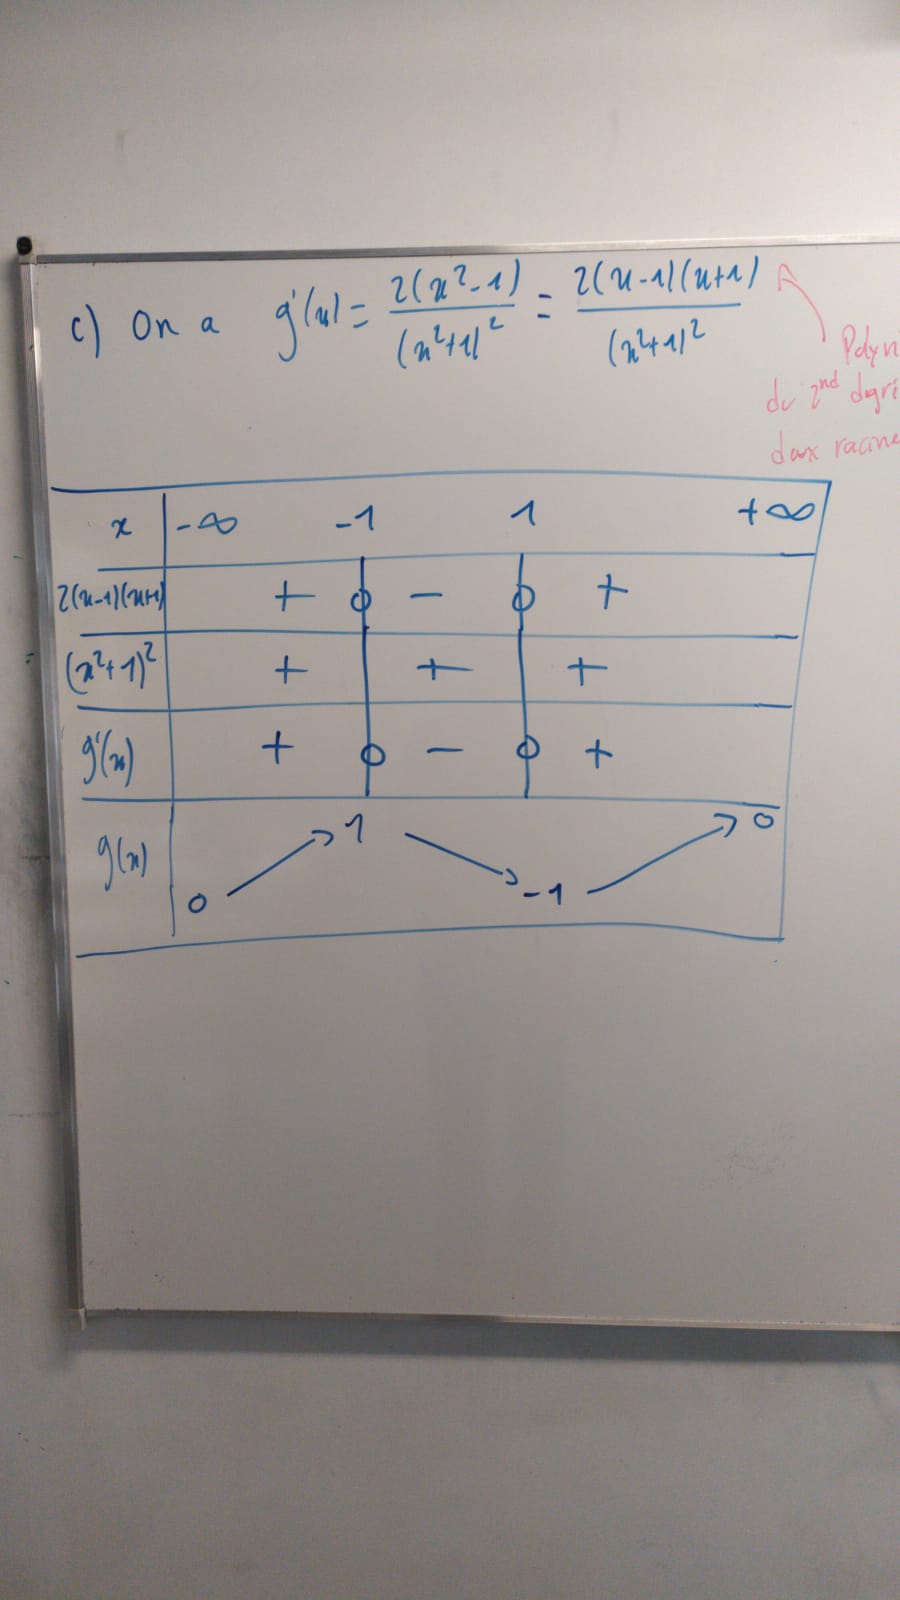 c) On a g'(x) = 2(x²-1)/(x²+1)² = 2(x-1)(x+1)/(x²+1)²
du 2nd degré
deux racine
x -∞ -1 1 +∞
2(x-1)(x+1) + 0 - 0 +
(x²+1)² + + +
g'(x) + 0 - 0 +
g(x) 0 ↗ 1 ↘ -1 ↗ 0